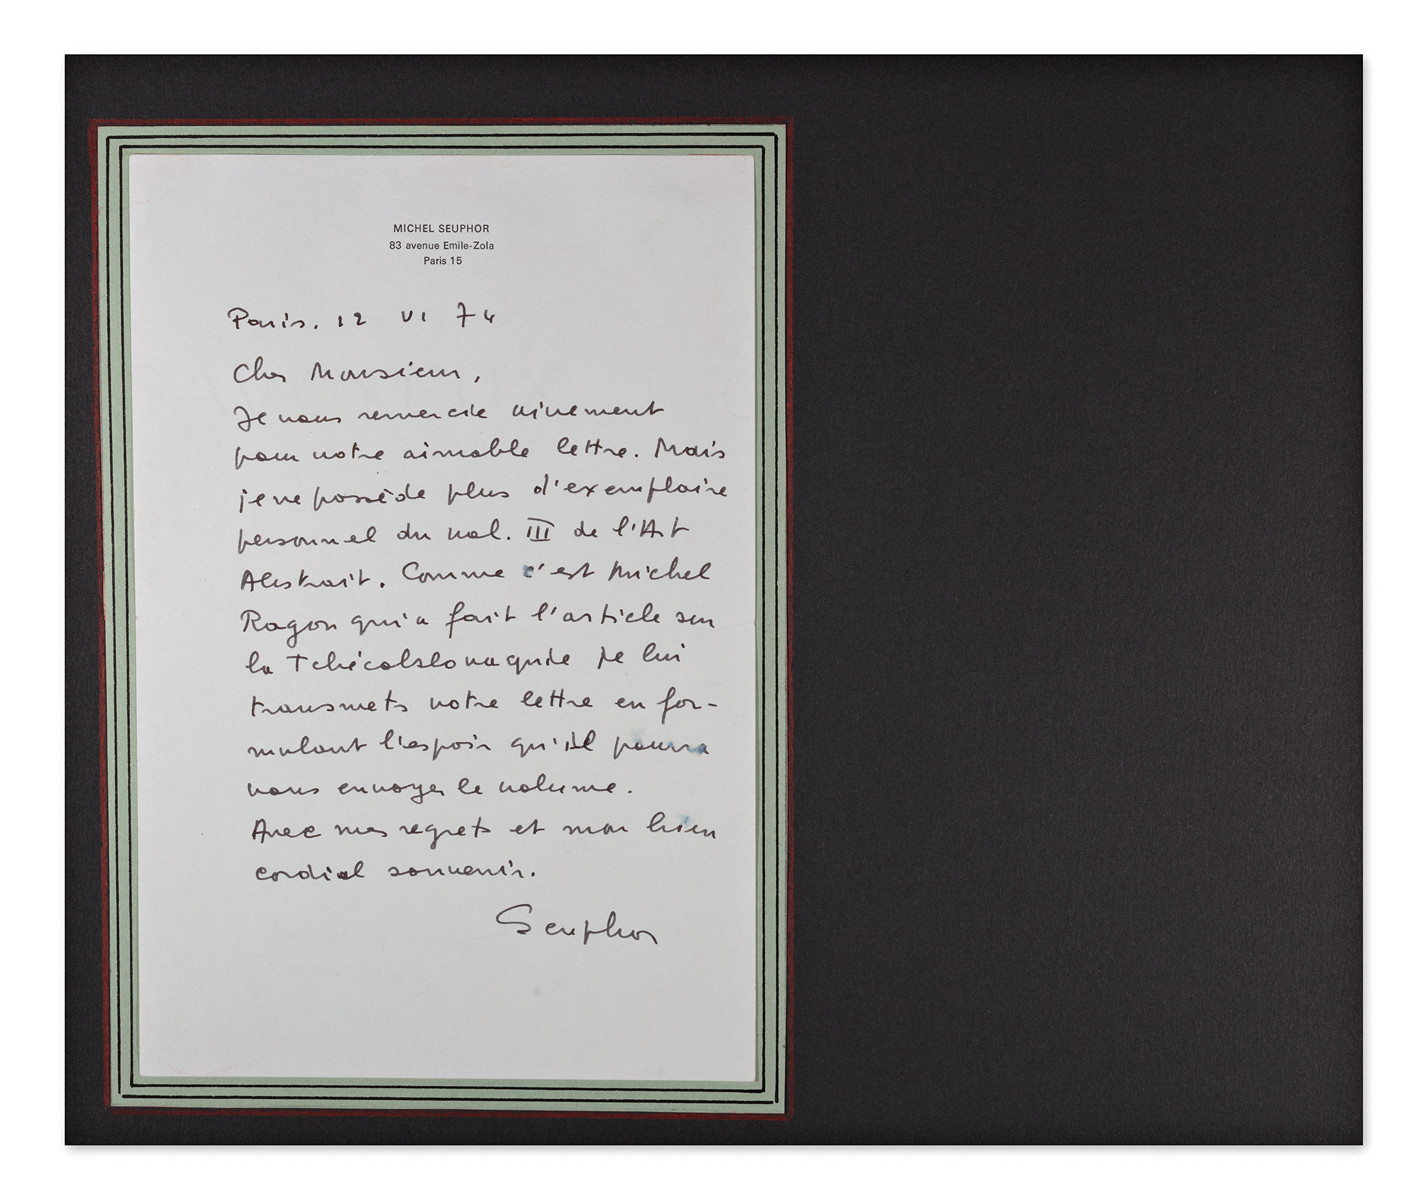 MICHEL SEUPHOR
83 avenue Emile-Zola
Paris 15
Paris. 12 VI 74
Cher Monsieur,
Je vous remercie vivement
pour votre aimable lettre. Mais
je ne possède plus d'exemplaire
personnel du vol. III de l'Art
Abstrait. Comme c'est Michel
Ragon qui a fait l'article sur
la Tchécolslovaquie je lui
transmets votre lettre en for-
mulant l'espoir qu'il pourra
vous envoyer le volume.
Avec mes regrets et mon bien
cordial souvenir.
Seuphor